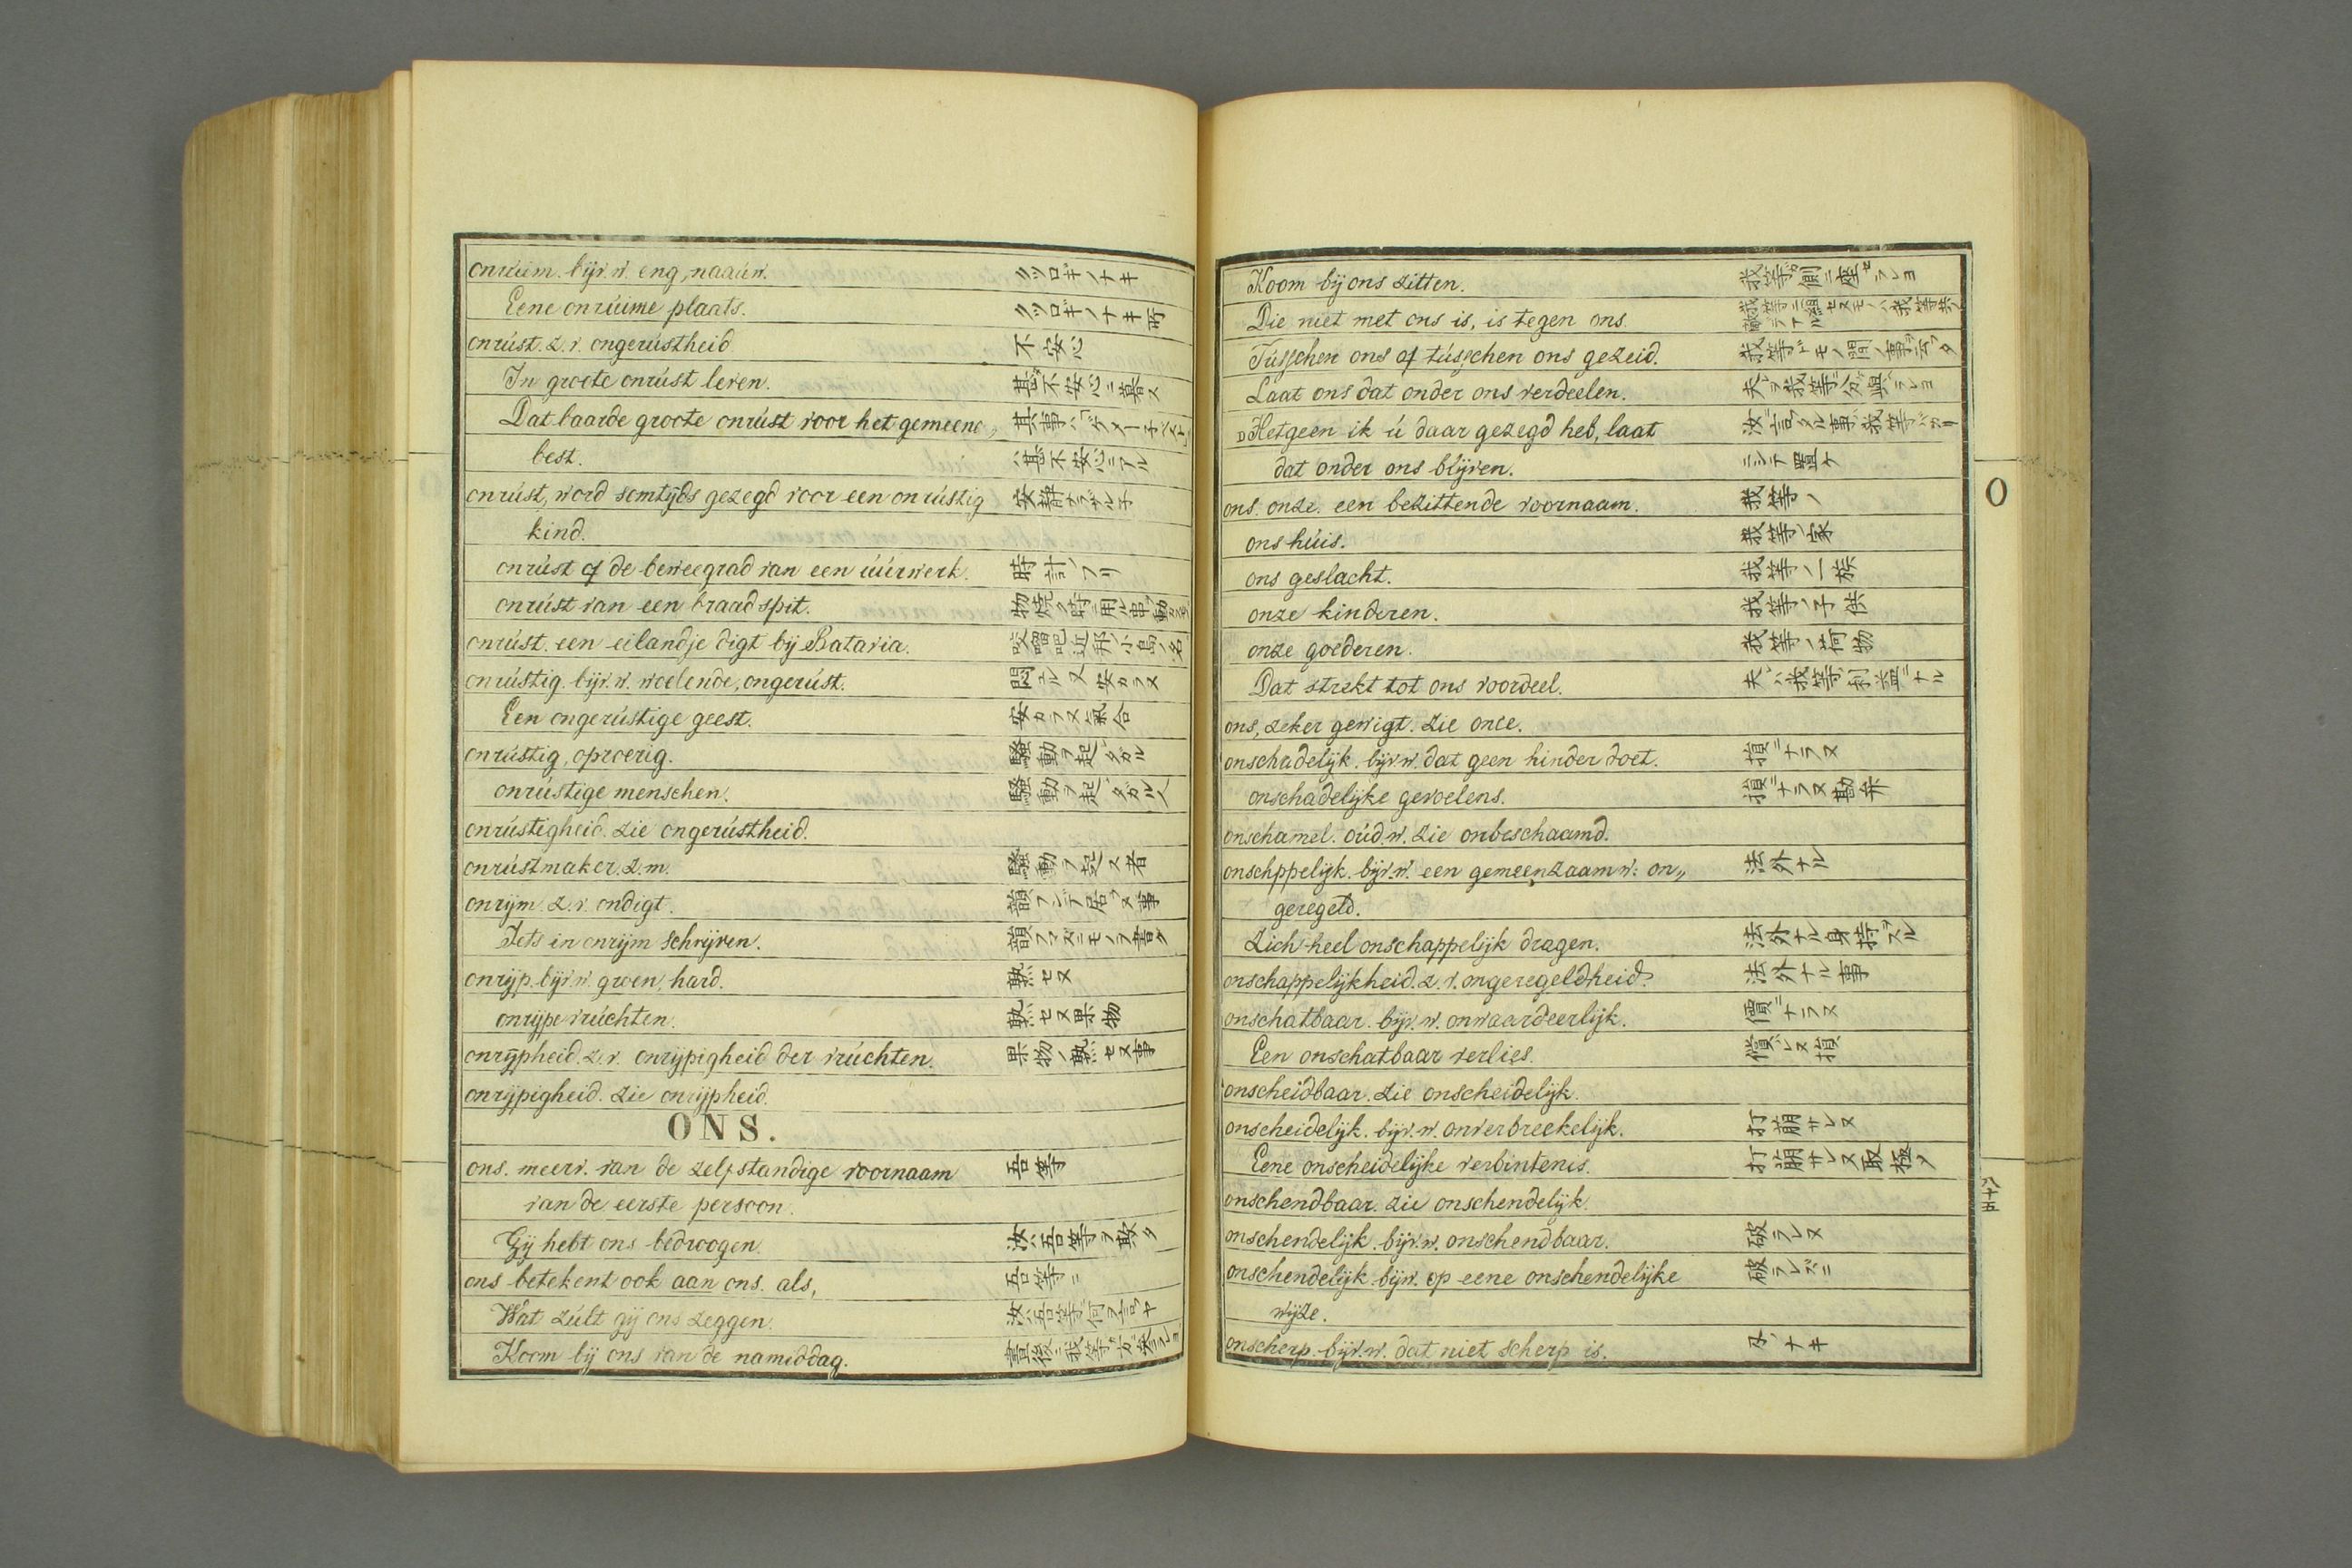 onrúim. bijv. w. eng, naaúw. クツロギノナキ
Eene onrúime plaats. クツロギノナキ所
onrúst. z. v. ongerústheid 不安心
In groote onrúst leven. 甚不安心ニ暮ス
Dat baarde groote onrúst voor het gemeene 其事ハゲメーネベスト
best. 甚不安心ニアル
onrúst, word somtijds gezegd voor een onrústig 安静ナラザル子
kind.
onrúst of de beweegrad van een úúrwerk. 時計ノフリ
onrúst van een braadspit. 物焼ク時ニ用ル串ノ動
onrúst. een eilandje digt bij Batavia. 咬𠺕吧近所ノ小島ノ名
onrústig. bijv. w. woelende, ongerúst. 悶ユル又安カラヌ
Een ongerústige geest. 安カラヌ氣合
onrústig, oproerig. 騒動ヲ起シタガル
onrústige menschen. 騒動ヲ起シタガル人
onrústigheid. zie ongerústheid.
onrústmaker. z. m. 騒動ヲ起ス者
onrijm. z. v. ondigt. 韻フンデ居ラヌ事
Iets in onrijm schrijven. 韻フマズニモノヲ書ク
onrijp. bijv. w. groen, hard. 熟セヌ
onrijpe vrúchten. 熟セヌ果物
onrijpheid. z. v. onrijpigheid der vrúchten. 果物ノ熟セヌ事
onrijpigheid. zie onrijpheid.
ONS.
ons. meerv. van de zelfstandige voornaam 吾等
van de eerste persoon.
Gij hebt ons bedroogen. 汝ハ吾等ヲ欺ク
ons betekent ook aan ons. als, 吾等ニ
Wat zúlt gij ons zeggen. 汝ハ吾等ニ何ヲ言フヤ
Koom bij ons van de namiddag. 晝後ニ我等ガ方ヘ参ラレヨ
Koom bij ons zitten. 我等ガ側ニ座セラレヨ
Die niet met ons is, is tegen ons. 我等ニ組セヌモノハ我等共ノ敵デアル
Tússchen ons of tússchen ons gezeid. 我等ドモノ間ノ事
Laat ons dat onder ons verdeelen. 夫ヲ我等ニ分與ラレヨ
Hetgeen ik ú daar gezegd heb, laat 汝ニ言タル事ハ我等バカリ
dat onder ons blijven. ニシテ置ケ
ons. onze. een bezittende voornaam. 我等ノ
ons húis. 我等ノ家
ons geslacht. 我等ノ一族
onze kinderen. 我等ノ子供
onze goederen. 我等ノ荷物
Dat strekt tot ons voordeel. 夫ハ我等ノ利益ニナル
ons, zeker gewigt. zie once.
onschadelijk. bijv. w. dat geen hinder doet. 損ニナラヌ
onschadelijke gevoelens. 損ニナラヌ勘弁
onschamel. oúd. w. zie onbeschaamd.
onschppelijk. bijv. w. een gemeenzaam w: on„ 法外ナル
geregeld.
Zich heel onschappelijk dragen. 法外ナル身持ヲスル
onschappelijkheid. z. v. ongeregeldheid. 法外ナル事
onschatbaar. bijv. w. onwaardeerlijk. 價ニナラヌ
Een onschatbaar verlies. 償ハレヌ損
onscheidbaar. zie onscheidelijk.
onscheidelijk. bijv. w. onverbreekelijk. 打崩サレヌ
Eene onscheidelijke verbintenis. 打崩サレヌ取極メ
onschendbaar. zie onschendelijk.
onschendelijk. bijv. w. onschendbaar. 破ラレヌ
onschendelijk. bijw. op eene onschendelijke 破ラレズニ
wijze.
onscherp. bijv. w. dat niet scherp is. 刃ノナキ
O
八十五